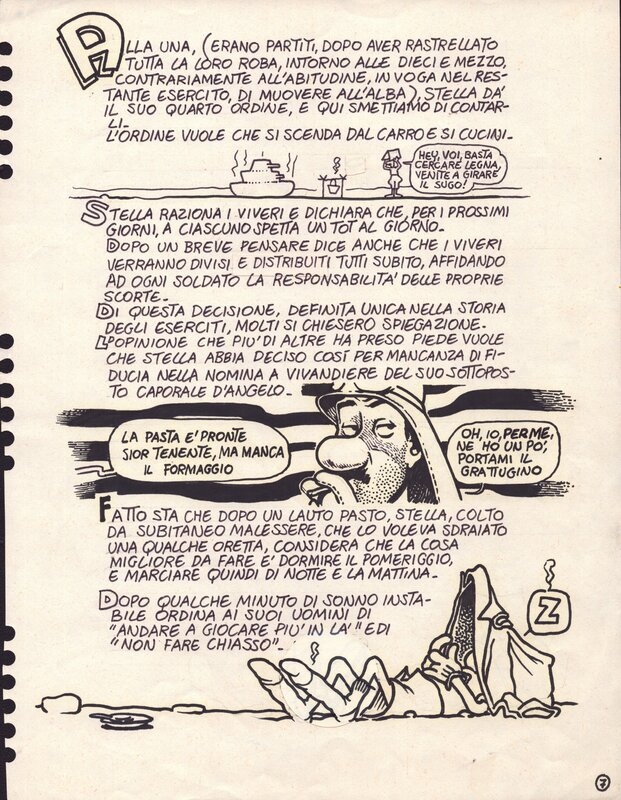 ALLA UNA, (ERANO PARTITI, DOPO AVER RASTRELLATO
TUTTA LA LORO ROBA, INTORNO ALLE DIECI E MEZZO,
CONTRARIAMENTE ALL'ABITUDINE, IN VOGA NEL RES-
TANTE ESERCITO, DI MUOVERE ALL'ALBA), STELLA DA'
IL SUO QUARTO ORDINE, E QUI SMETTIAMO DI CONTAR-
LI.
L'ORDINE VUOLE CHE SI SCENDA DAL CARRO E SI CUCINI.
HEY, VOI, BASTA
CERCARE LEGNA,
VENITE A GIRARE
IL SUGO!
STELLA RAZIONA I VIVERI E DICHIARA CHE, PER I PROSSIMI
GIORNI, A CIASCUNO SPETTA UN TOT AL GIORNO.
DOPO UN BREVE PENSARE DICE ANCHE CHE I VIVERI
VERRANNO DIVISI E DISTRIBUITI TUTTI SUBITO, AFFIDANDO
AD OGNI SOLDATO LA RESPONSABILITA' DELLE PROPRIE
SCORTE.
DI QUESTA DECISIONE, DEFINITA UNICA NELLA STORIA
DEGLI ESERCITI, MOLTI SI CHIESERO SPIEGAZIONE.
L'OPINIONE CHE PIU' DI ALTRE HA PRESO PIEDE VUOLE
CHE STELLA ABBIA DECISO COSÍ PER MANCANZA DI FI-
DUCIA NELLA NOMINA A VIVANDIERE DEL SUO SOTTOPOS-
TO CAPORALE D'ANGELO.
LA PASTA E' PRONTE
SIOR TENENTE, MA MANCA
IL FORMAGGIO
OH, IO, PER ME,
NE HO UN PO',
PORTAMI IL
GRATTUGINO
FATTO STA CHE DOPO UN LAUTO PASTO, STELLA, COLTO
DA SUBITANEO MALESSERE, CHE LO VOLEVA SDRAIATO
UNA QUALCHE ORETTA, CONSIDERA CHE LA COSA
MIGLIORE DA FARE E' DORMIRE IL POMERIGGIO,
E MARCIARE QUINDI DI NOTTE E LA MATTINA.
DOPO QUALCHE MINUTO DI SONNO INSTA-
BILE ORDINA AI SUOI UOMINI DI
"ANDARE A GIOCARE PIU' IN LA'" E DI
"NON FARE CHIASSO".
Z
7